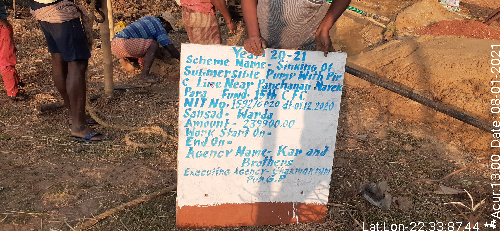 Year- 20-21
Scheme Name:- Sinking Of
Submersible Pump With PV
C Line Near Panchanan Narek
Para Fund- 15th C.F.C
NIT No- 1592/6020 dt 01.12.2020
Sansad- Warda
Amount- 239900.00
Work Start On-
End On=
Agency Name- Kar and
Brothers
Executing Agency-
G.P
Date: 08-01-2021
LatLon- 22.33,87.44